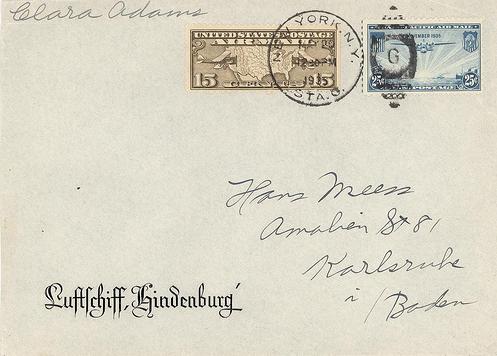 Clara Adams
UNITED STATES POSTAGE
15 15
NEW YORK, N.Y.
12 30 PM
STA. G.
TRANS-PACIFIC AIR MAIL
NOVEMBER 1935
25¢ 25¢
U.S. POSTAGE
G
Hans Meess
Amalien St 81
Karlsruhe
i / Baden
Luftschiff „Hindenburg“